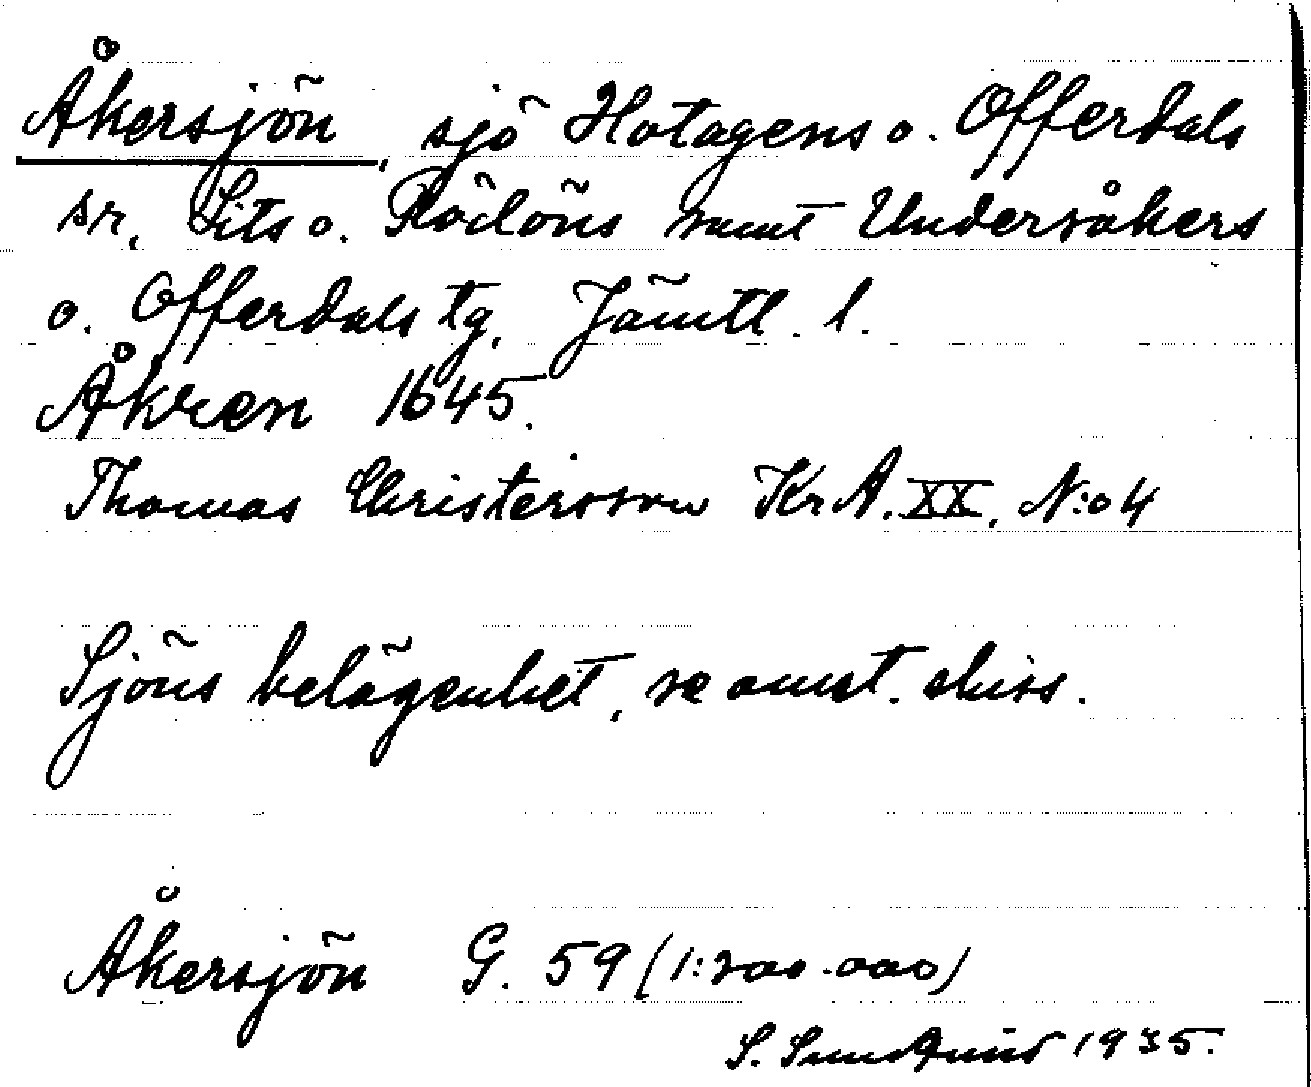 Åkersjön, sjö Hotagens o. Offerdals
sn, Lits o. Rödöns samt Undersåkers
o. Offerdals tg, Jämtl. l.
Åkren 1645.
Thomas Christersson KrA. XX, N:o 4
Sjöns belägenhet, se anst. skiss.
Åkersjön G. 59 (1:200.000)
S. Sundquist 1935.